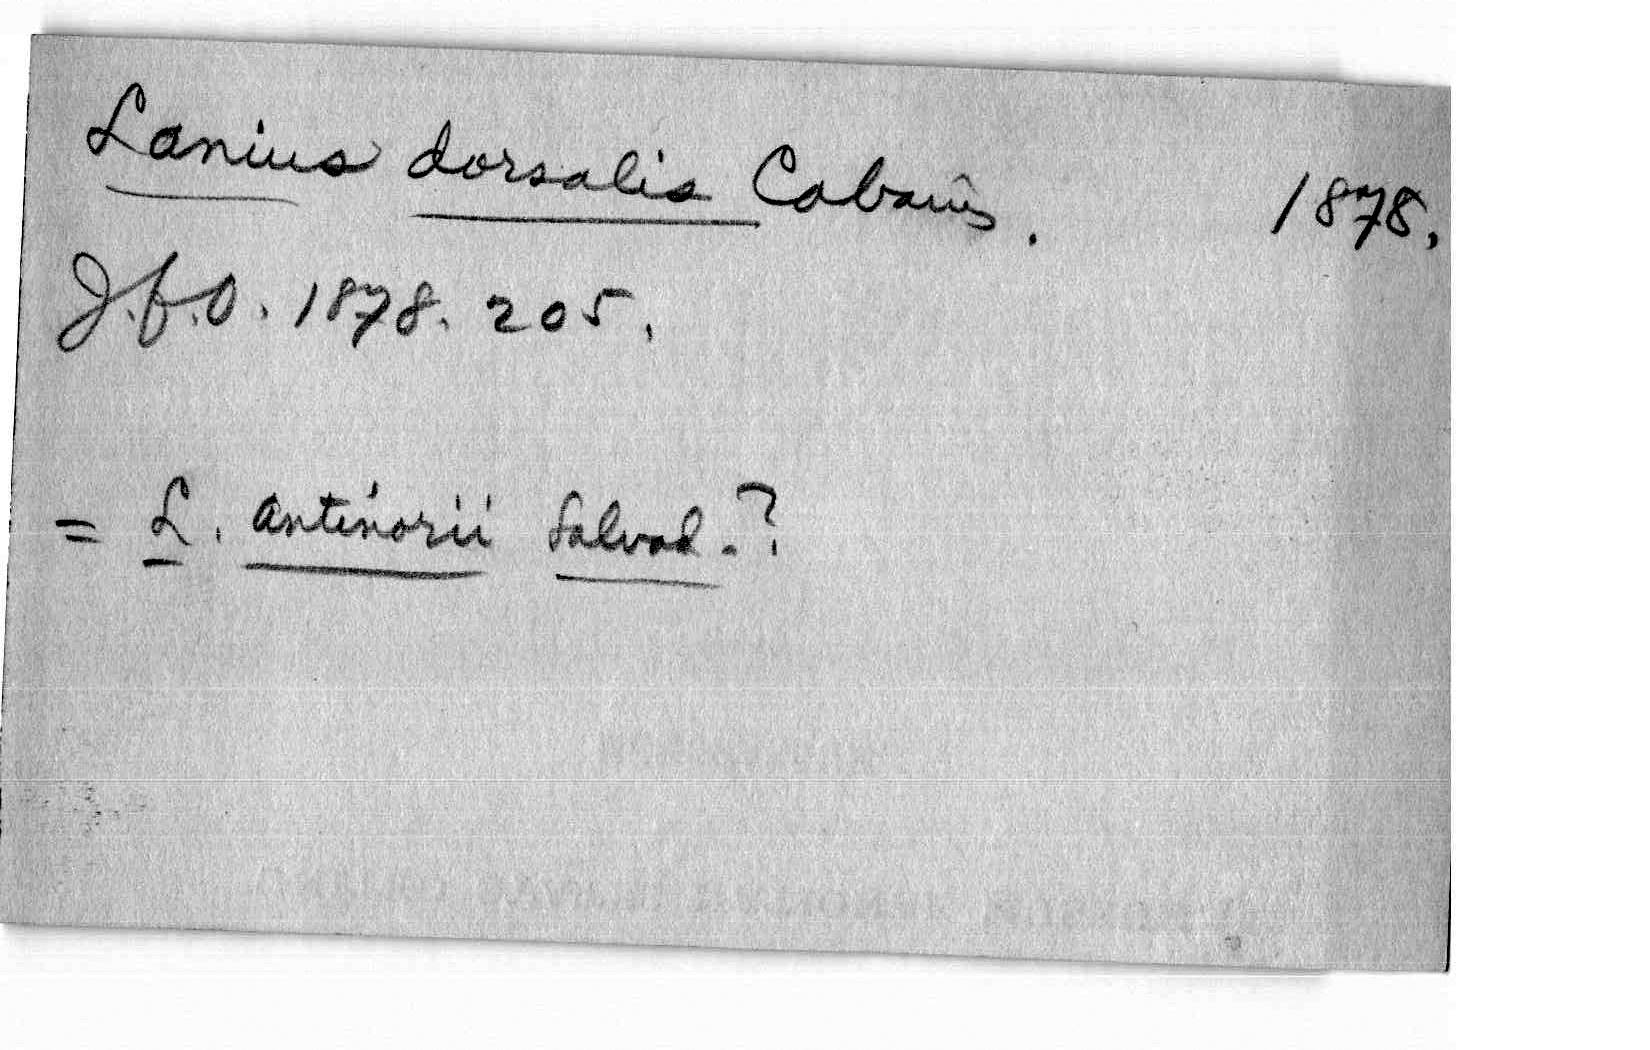 Lanius dorsalis Cabanis. 1878.
J.f.O. 1878. 205.
= L. antinorii Salvad.?